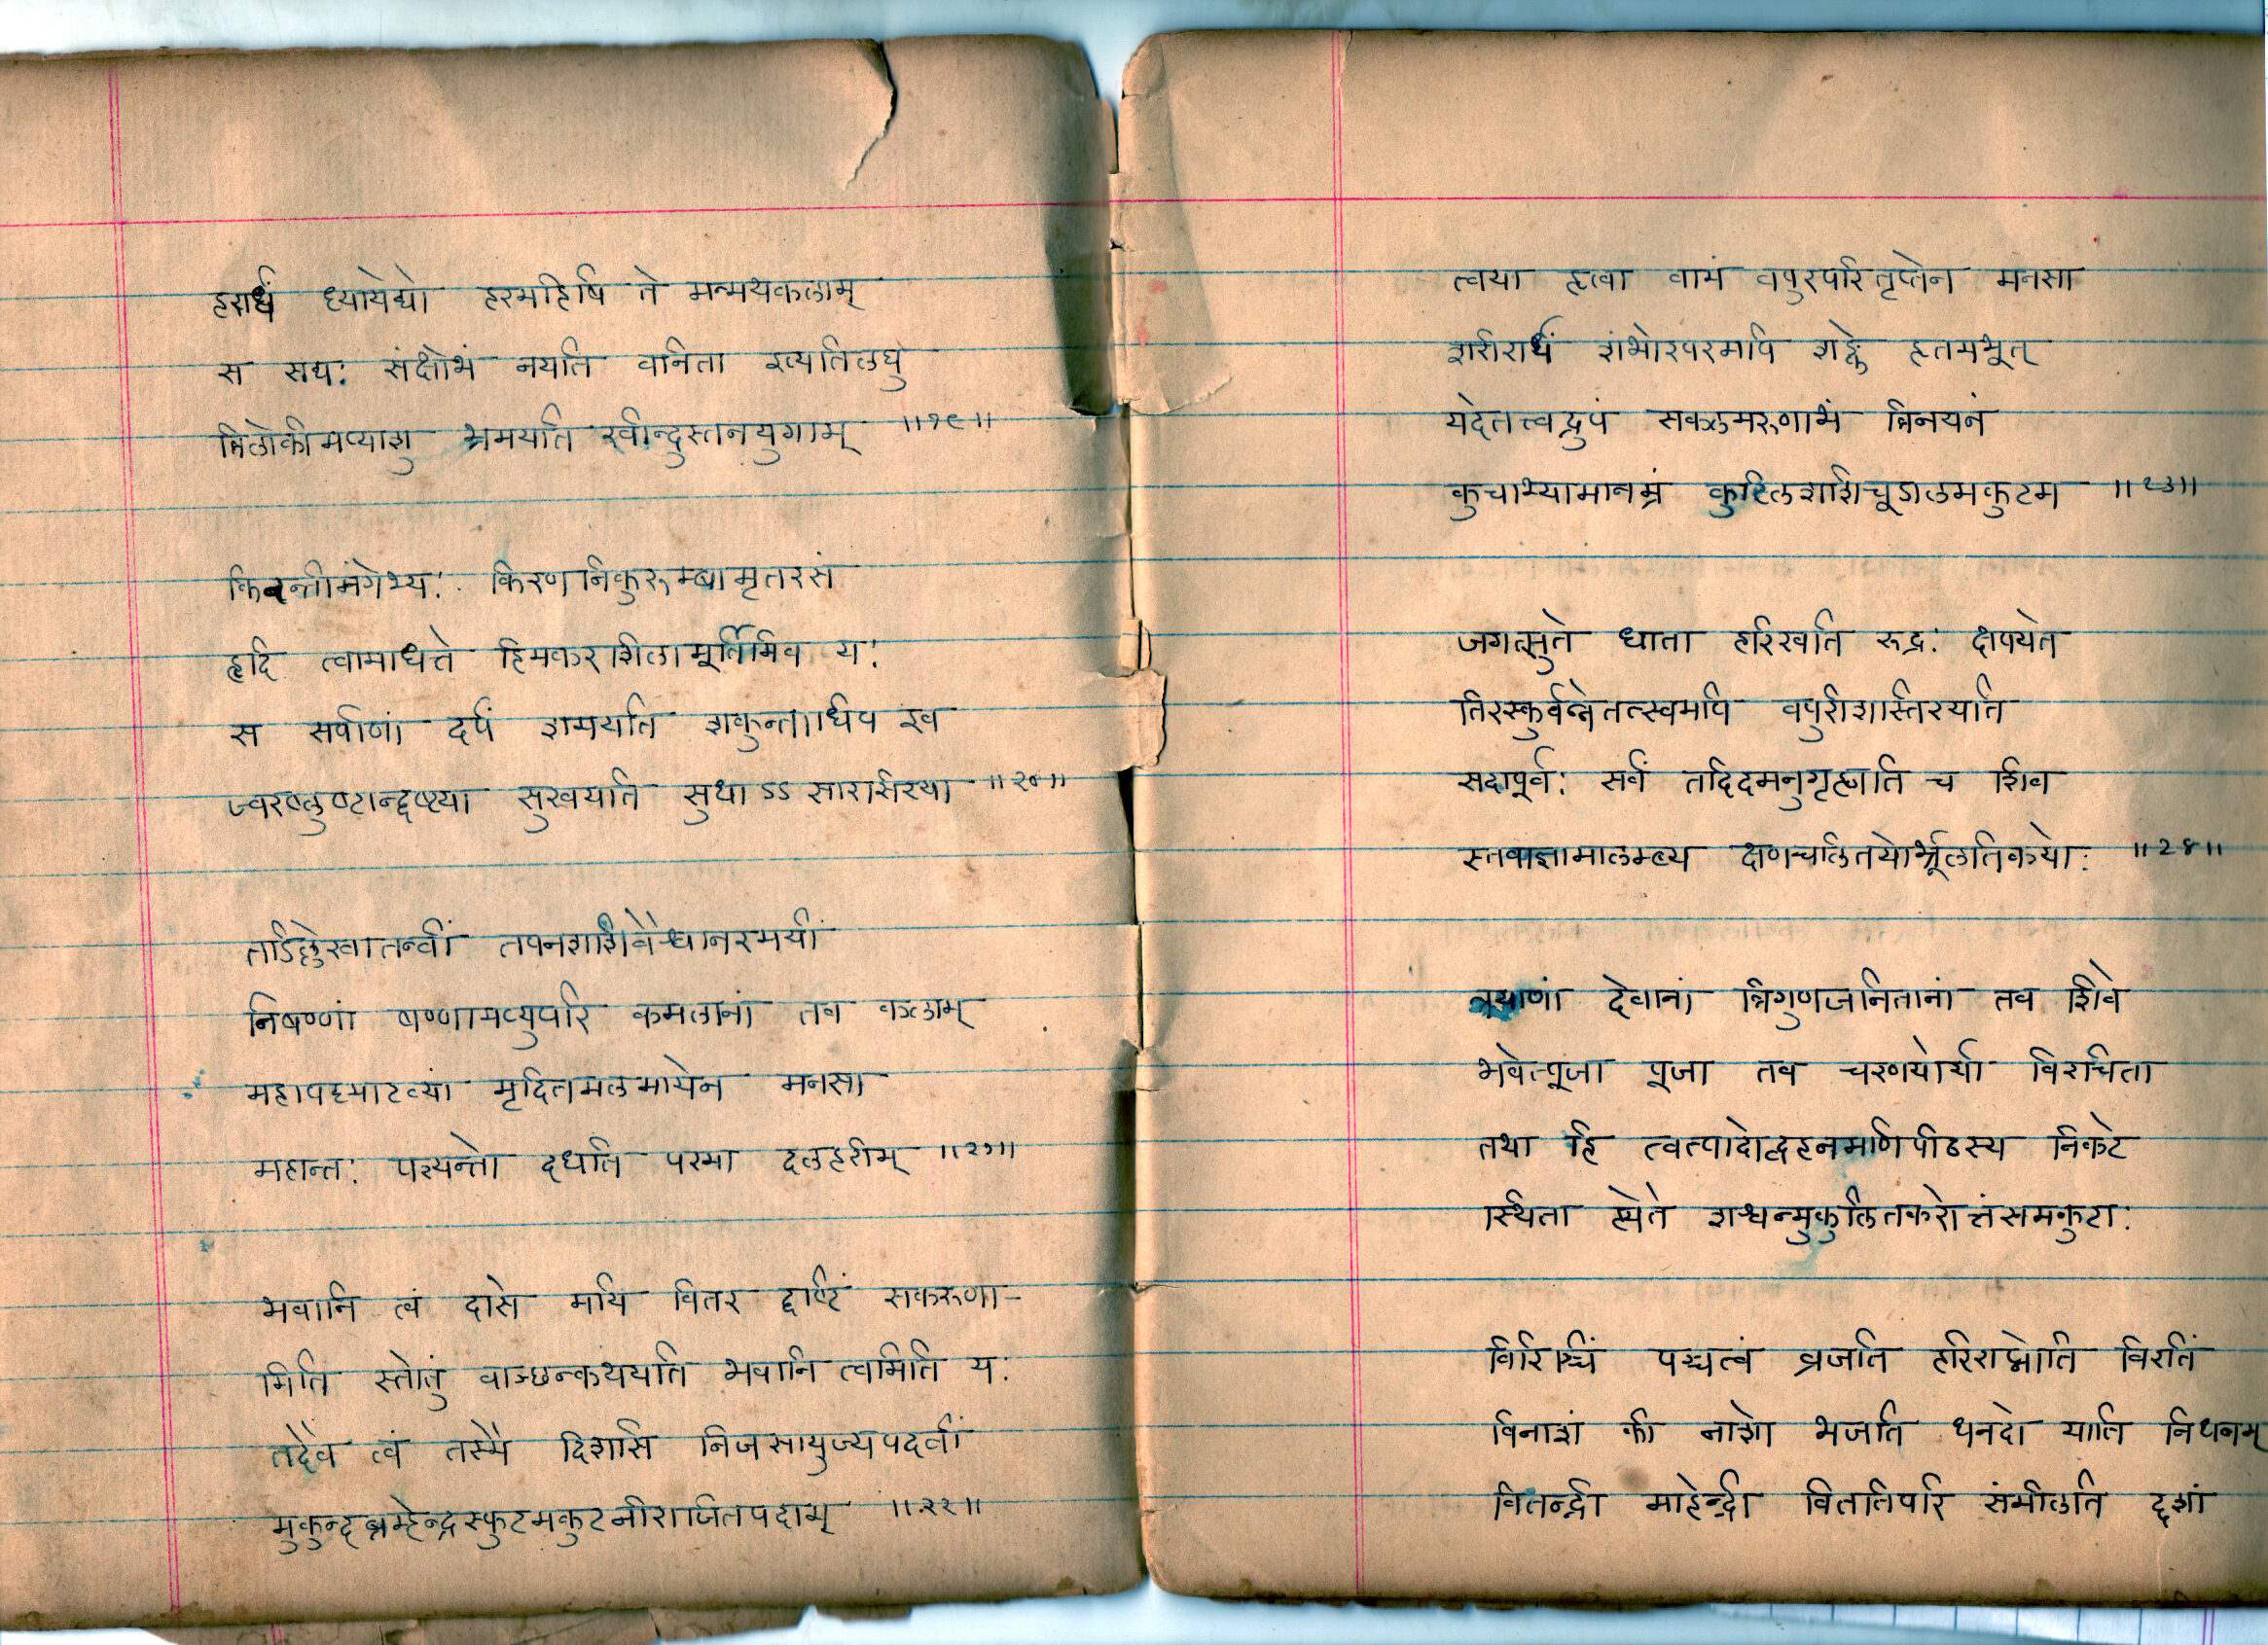 हरार्धं ध्यायेद्यो हरमहिषि ते मन्मथकलाम्
स सद्य: संक्षोभं नयति वनिता इत्यतिलघु
त्रिलोकीमप्याशु भ्रमयति रवीन्दुस्तनयुगाम् ॥१९॥
किरन्तीमंगेभ्य: किरणनिकुरुम्बामृतरसं
हृदि त्वामाधत्ते हिमकरशिलामूर्तिमिव य:
स सर्पाणां दर्पं शमयति शकुन्ताधिप इव
ज्वरप्लुष्टान्दृष्ट्या सुखयति सुधाऽऽ सारसिरया ॥२०॥
तडिल्लेखातन्वीं तपनशशिवैश्वानरमयीं
निषण्णां षण्णामप्युपरि कमलानां तव कलाम्
महापद्माटव्यां मृदितमलमायेन मनसा
महान्त: पश्यन्तो दधति परमा दलहरीम् ॥२१॥
भवानि त्वं दासे मयि वितर दृष्टिं सकरुणा-
मिति स्तोतुं वाञ्छन्कथयति भवानि त्वमिति य:
तदैव त्वं तस्मै दिशसि निजसायुज्यपदवीं
मुकुन्दब्रम्हेन्द्रस्फुटमकुटनीराजितपदाम् ॥२२॥
त्वया हृत्वा वामं वपुरपरितृप्तेन मनसा
शरीरार्धं शंभोरपरमपि शङ्के हृतमभूत्
यदेतत्त्वद्रुपं सकलमरुणाभं त्रिनयनं
कुचाभ्यामानम्रं कुटिलशशिचूडालमकुटम ॥२३॥
जगत्सुते धाता हरिरवति रुद्र: क्षपयेत
तिरस्कुर्वन्नेतत्स्वमपि वपुरीशास्तिरयति
सदापूर्व: सर्वं तदिदमनुगृह्णाति च शिव
स्तवाज्ञामालम्ब्य क्षणचलितयोर्भ्रूलतिकयो: ॥२४॥
त्रयाणां देवानां त्रिगुणजनितानां तव शिवे
भवेत्पूजा पूजा तव चरणयोर्या विरचिता
तथा हि त्वत्पादोद्वहनमणिपीठस्य निकटे
स्थिता ह्येते शश्वन्मुकुलितकरोत्तंसमकुटा:
विरिञ्चिं पञ्चत्वं व्रजति हरिराप्नोति विरतिं
विनाशं की नाशो भजति धनदो याति निधनम्
वितन्द्री माहेन्द्री विततिपरि संमीलति दृशां